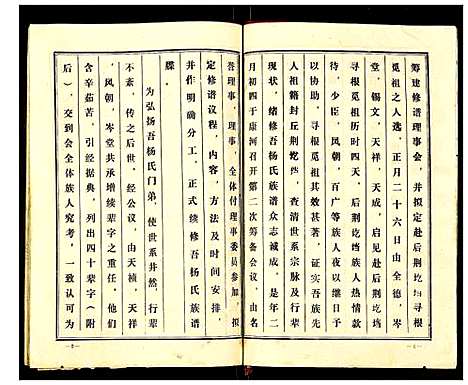 筹建修谱理事会，并拟定赴后荆圪垱寻根
觅祖之人选，正月二十六日由全德、岑
堂、锡文、天祥、天成、启见赴后荆圪垱
寻根觅祖历时四天，后荆圪垱族人热情款
待，少臣、凤朝、百广等族人夜以继日予
以协助，寻根觅祖其效甚著，证实吾族先
人祖籍封丘荆圪垱，查清世系宗脉及行辈
现状，绪修吾杨氏族谱众志诚成，是年二
月初四于康河召开第二次筹备会议，由名
誉理事、理事，全体付理事委员参加，拟
定修谱议程，内容，方法及时间安排，
并作明确分工，正式续修吾杨氏族谱
牒。
为弘扬吾杨氏门弟，使世系井然，行辈
不紊，传之后世，经公议，由天植、天祥
、凤朝、岑堂共承增续辈字之重任，他们
含辛茹苦，引经据典，列出四十辈字（附
后），交到会全体族人究考，一致认可为